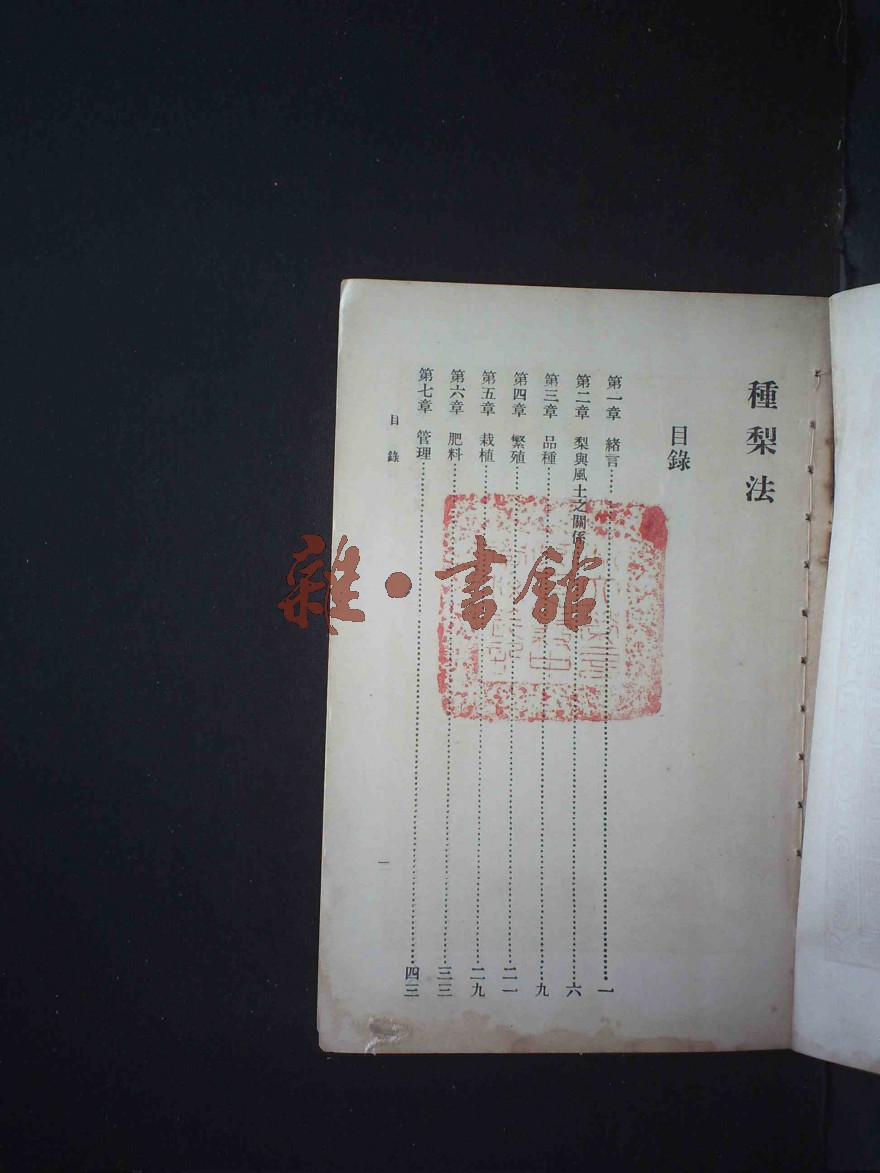 種梨法
目錄
第一章 緒言……一
第二章 梨與風土之關係……六
第三章 品種……九
第四章 繁殖……二一
第五章 栽植……二九
第六章 肥料……三三
第七章 管理……四三
目錄
一
雜·書館